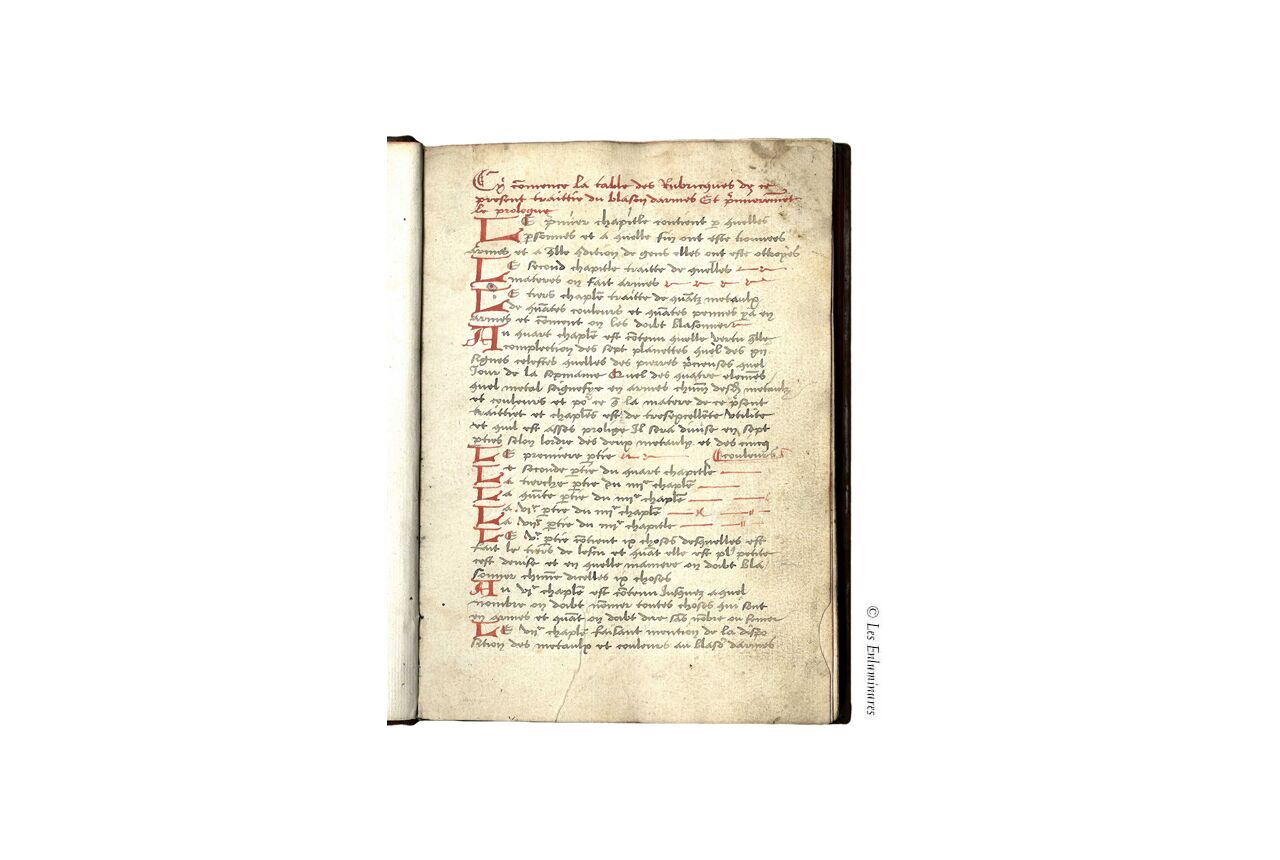 Cy cōmence la table des Rubricques de ce
present traittie du blason darmes Et p̄mierem̄et
le prologue
LE p̄mier chapitle contient p quelles
p̄sonnes et a quelle fin ont este trouuees
armes et a q̄lle 9dition de gens elles ont este ottroyes
LE second chapitle traitte de quelles
materes on fait armes
LE tiers chaplē traitte de quātz metaulx
de quātes couleurs et quātes pennes a en
armes et cōment on les doibt blasonner
AU quart chaplē est cōtenu quelle vertu q̄lle
complection des sept planettes quel des
signes celestes quelles des pierres p̄cieuses quel
Jour de la sepmaine Quel des quatre elemēs
quel metal seignefye en armes chūn desd metaulx
et couleurs et po ce q̄ la matere de ce p̄sent
traittiet et chaplēs est de tresexcellēte vtilite
et quil est asses prolige Il sera diuise en sept
pties selon lordre des deux metaulx et des cincq
LE premiere ptie couleurs
LE seconde ptie du quart chapitle
LA tierche ptie du iiijᵉ chaplē
LA quīte ptie du iiijᵉ chaplē
LA vjᵉ ptie du iiijᵉ chaplē
LA vijᵉ ptie du iiijᵉ chapitle
LE vᵉ ptie cōtient ix choses desquelles est
fait le tiers de lescu et quāt elle est pl petite
cest deuise et en quelle maniere on doibt bla
sonner chūne dicelles ix choses
AU vjᵉ chaplē est cōtenu Jusques a quel
nombre on doibt nōmer toutes choses qui sont
en armes et quāt on doibt dire sās nōbre ou semer
LE vijᵉ chaplē faisant mention de la dispo
sition des metaulx et couleurs au blasō darmes
© Les Enluminures